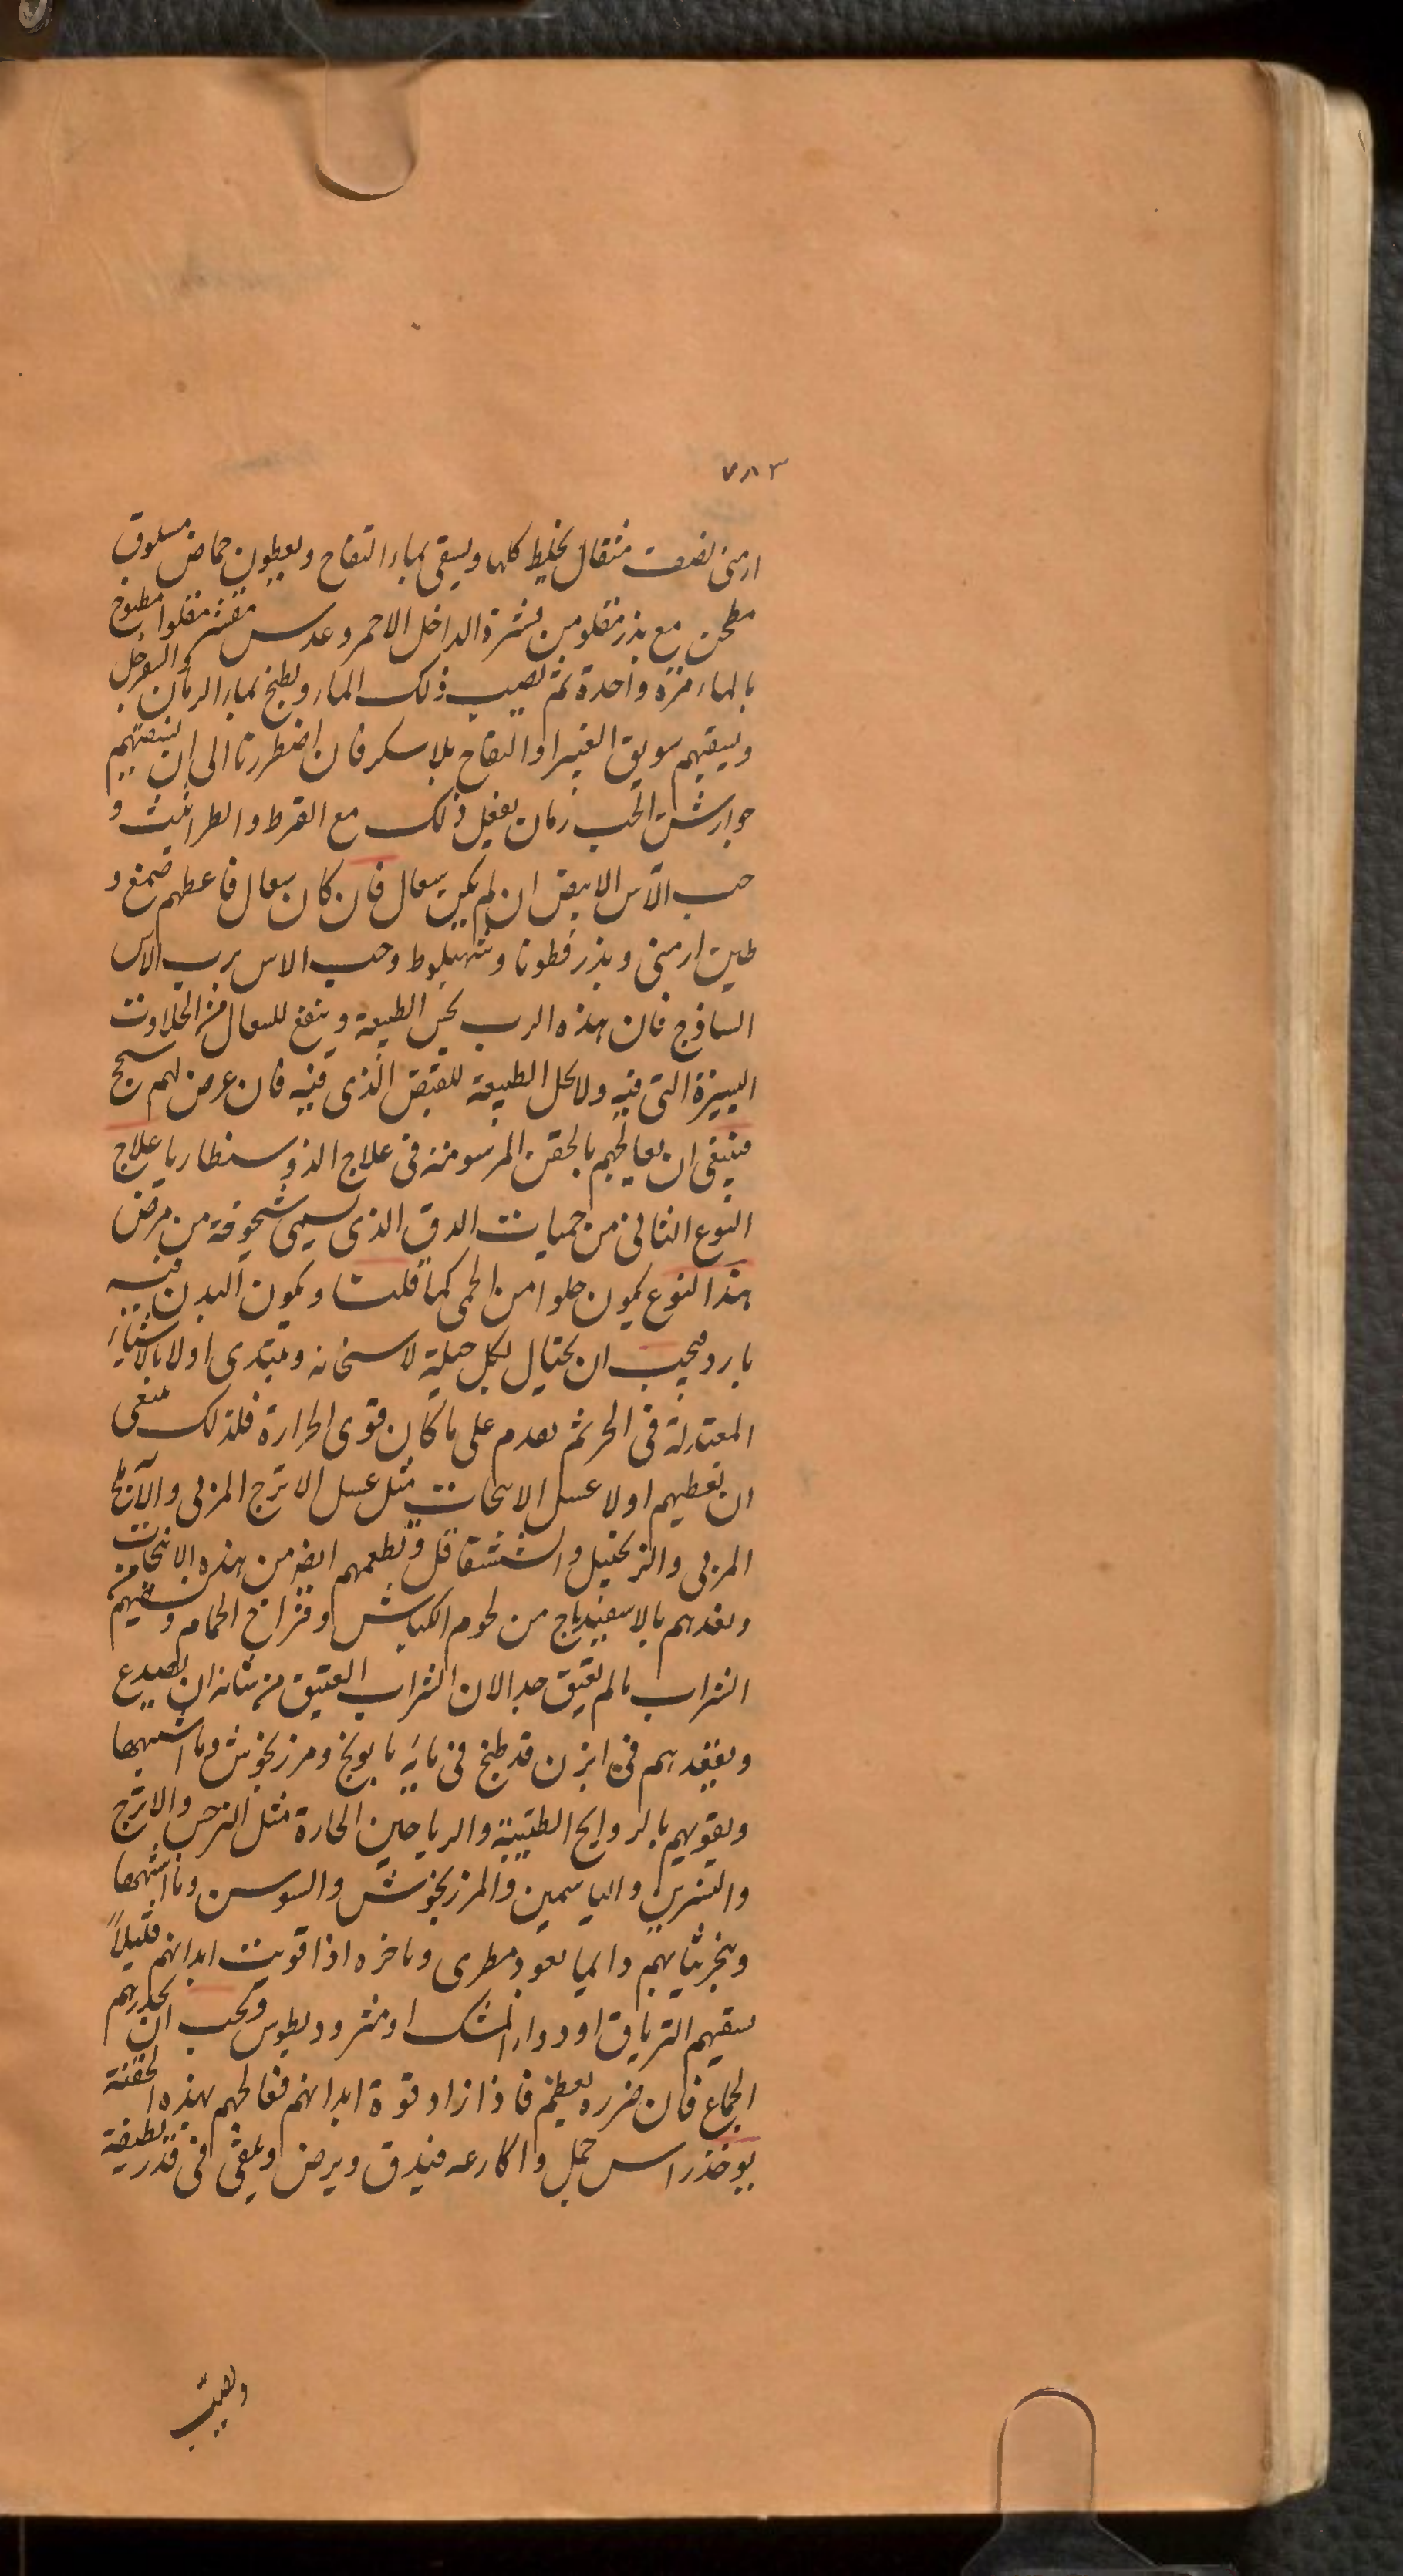 ٧٨٣
ارمنى نصف مثقال يخلط كلها ويسقى بماء التفاح ويعطون حماض مسلوق
مطحن مع بذر مقلو من قشرة الداخل الاحمر وعدس مقشر مقلوا مطبوخ
بالماء مرة واحدة ثم نصيب ذلك الماء ويطبخ بماء الرمان والسفرجل
ويسقيهم سويق الغبيرا والتفاح بلا سكر فان اضطررنا الى ان نسقيهم
جوارشن الحب رمان نفعل ذلك مع القرط والطراثيث و
حب الآس الابيض ان لم يكن سعال فان كان سعال فاعطهم صمغ و
طين ارمنى وبذر قطونا وشهبلوط وحب الاس برب الاس
الساذج فان هذه الرب يحبس الطبيعة وينفع للسعال من الحلاوت
اليسيرة التى فيه ولا يحل الطبيعة للقبض الذى فيه فان عرض لهم سحج
فينبغى ان يعالجهم بالحقن المرسومة فى علاج الذوسنطاريا علاج
النوع الثانى من حميات الدق الذى يسمى شيخوخة من مرض
هذا النوع يكون خلوا من الحمى كما قلت ويكون البدن فيه
بارد فيجب ان يحتال بكل حيلة لاسخانه ونبتدى اولا بالاشياء
المعتدلة فى الحر ثم نقدم على ما كان قوى الحرارة فلذلك ينبغى
ان نعطيهم اولا عسل الانبجات مثل عسل الاترج المربى والآملج
المربى والزنجبيل والشقاقل ونطعمهم ايضا من هذه الانبجات
ونغذيهم بالاسفيدباج من لحوم الكباش وفراخ الحمام ونسقيهم من
الشراب ما لم يعتق جدا لان الشراب العتيق من شانه ان يصدع
ونقعدهم فى ابزن قد طبخ فى مائه بابونج ومرزنجوش وما اشبهها
ونقويهم بالروايح الطيبة والرياحين الحارة مثل النرجس والاترج
والنسرين والياسمين والمرزنجوش والسوسن وما اشبهها
ونبخر ثيابهم دايما بعود مطرى وباخره اذا قويت ابدانهم قليلاً
نسقيهم الترياق او دواء المسك او مثروديطوس ويجب ان نحذرهم
الجماع فان ضرره يعظم فاذا زاد قوة ابدانهم فعالجهم بهذه الحقنة
يوخذ راس حمل واكارعه فيدق ويرض ويلقى فى قدر نظيفة
ويصب